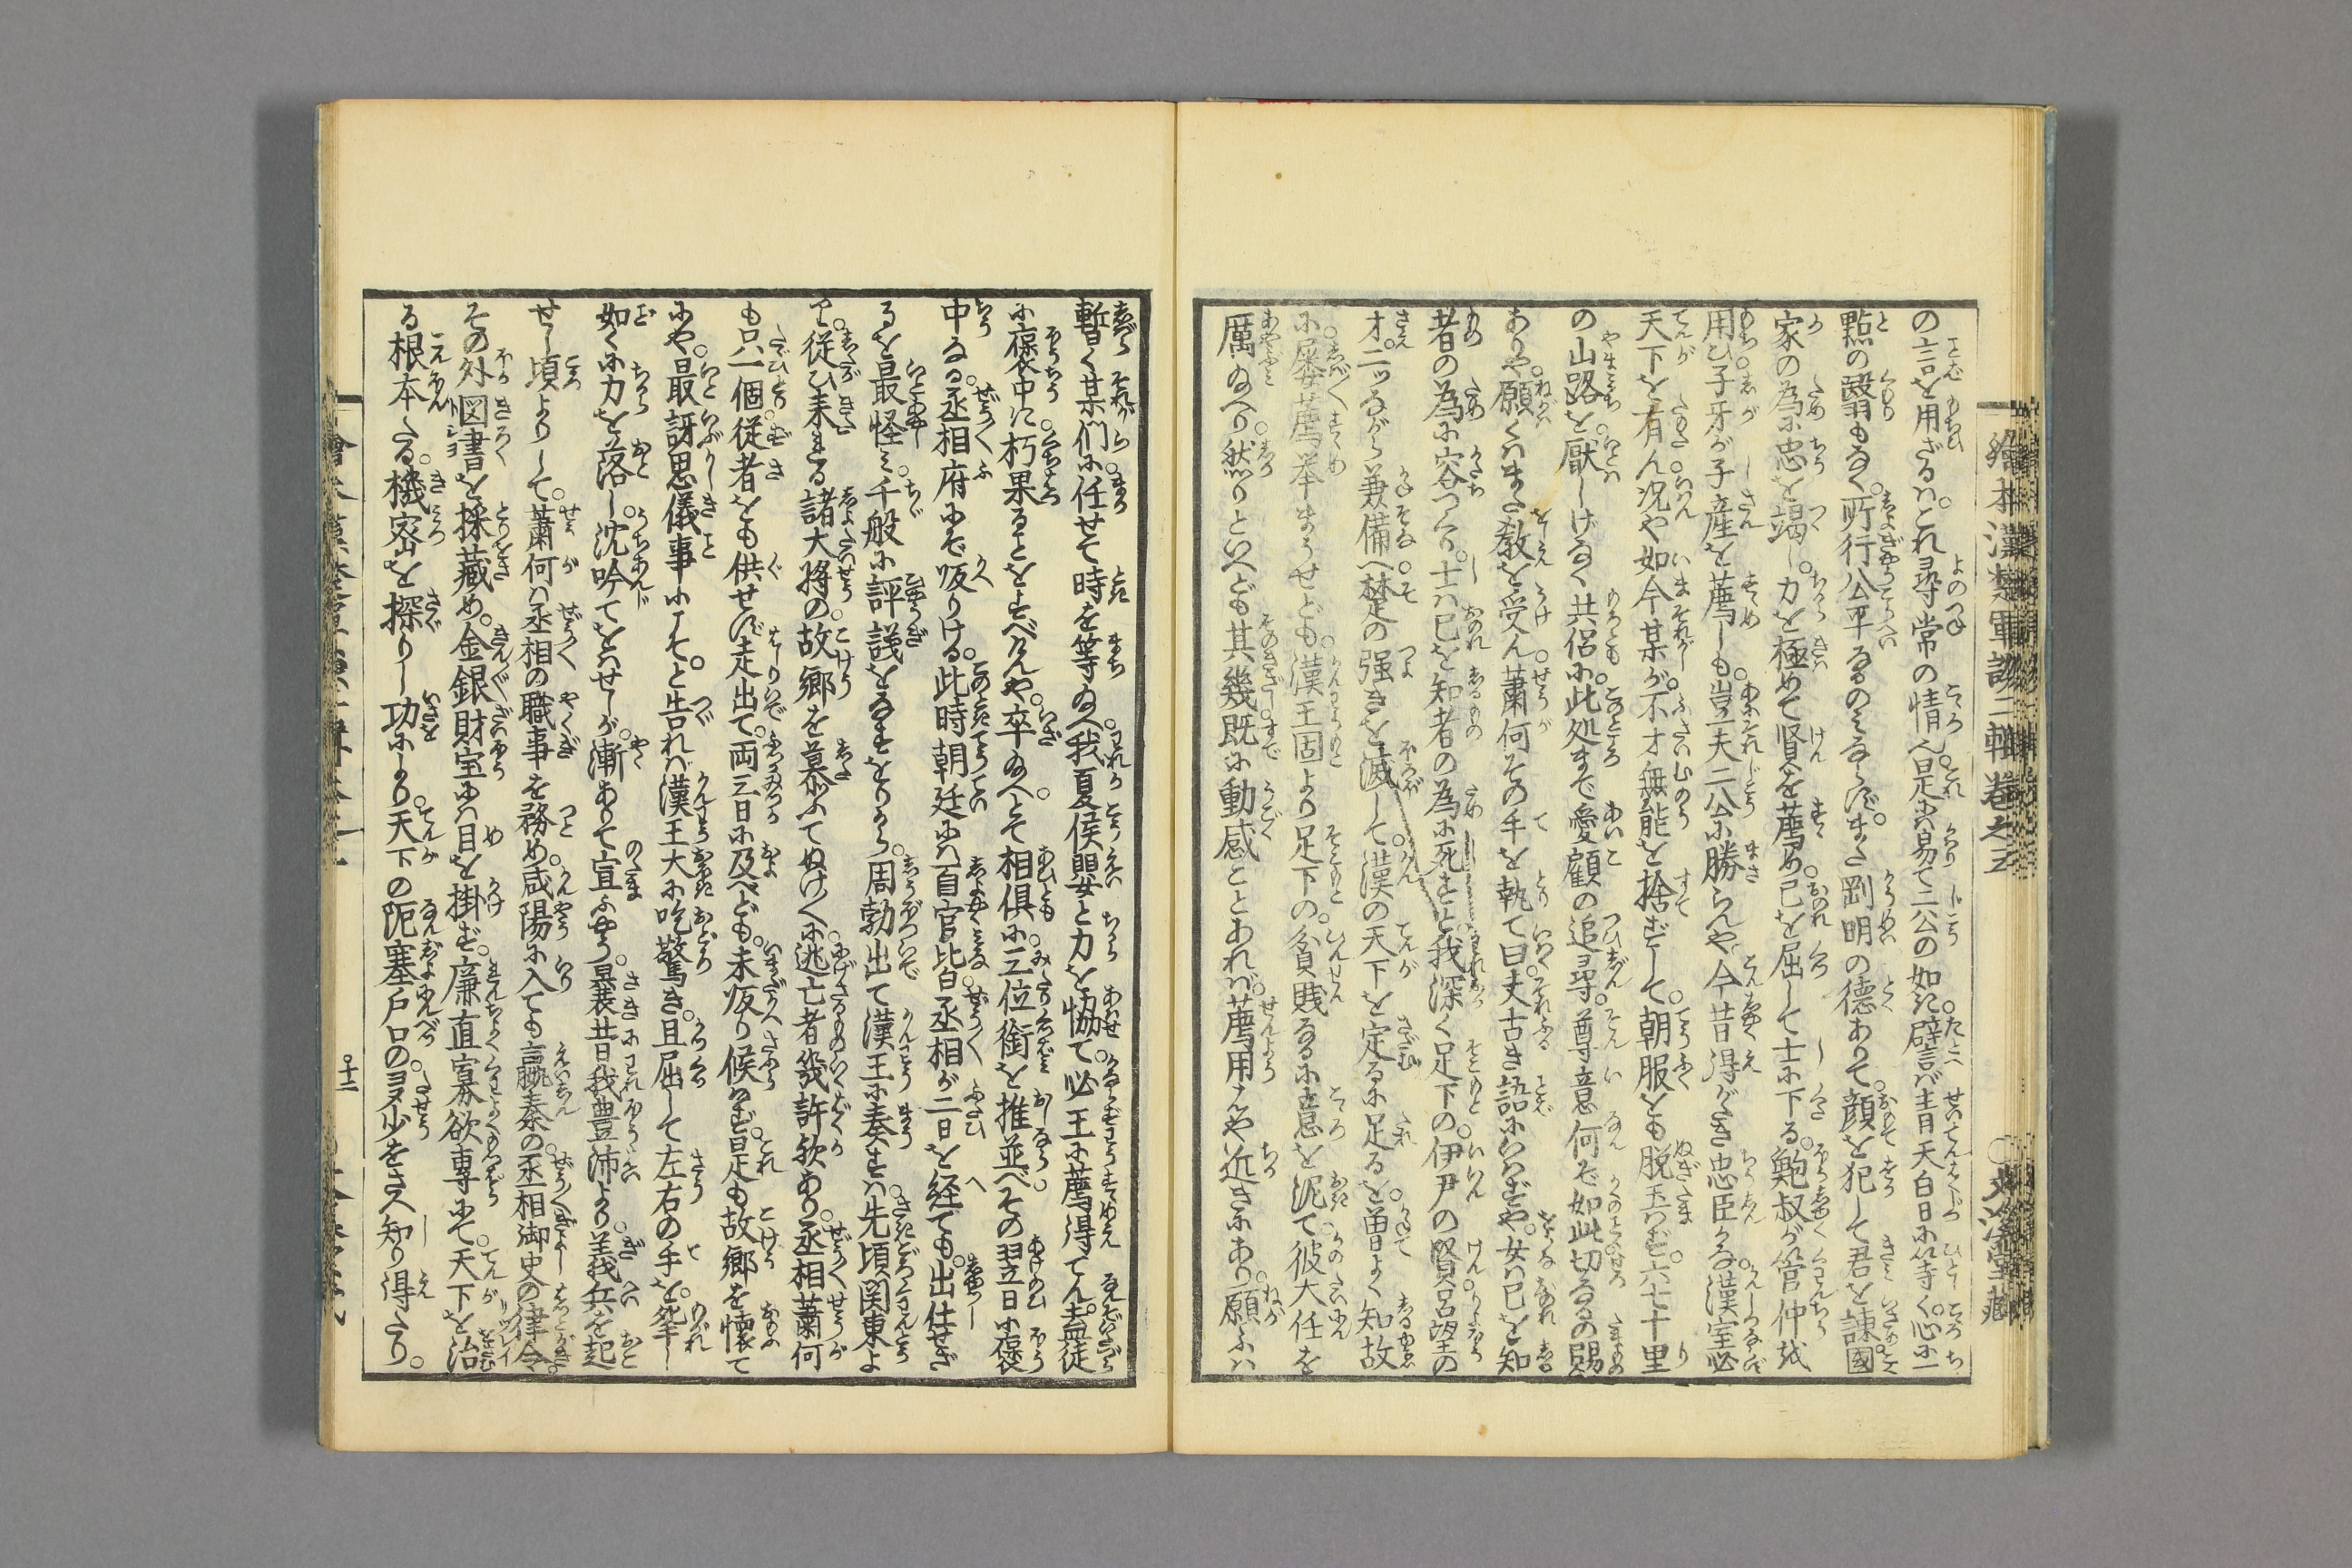 繪本漢楚軍談二輯卷之三
の言を用ざるハ。これ尋常の情ん。是お易て二公の如きハ。譬バ青天白日に等く。心に一
點の翳もなく。所行公平なるのミならず。また剛明の徳ありて。顔を犯して君を諫。國
家の為に忠を竭し。力を極めて賢を薦め。己を屈して士に下る。鮑叔が管仲を
用ひ。子牙が子産を薦しも。豈夫二公に勝らんや。今昔得がたき忠臣かな。漢室必
天下を有ん。况や如今某が。不才無能を捨ずして。朝服をも脱玉ハず。六七十里
の山路を。厭しげなく共侶に。此処まで愛顧の追尋。尊意何ぞ如此切なるの賜
ありや。願くハまた教を受ん。蕭何その手を執て曰。丈夫古き語にいハずや。女ハ己を知
者の為に容つくり。士ハ己を知者の為に死すと。我深く足下の。伊尹の賢。呂望の
才。二ッながら兼備へ。楚の強きを滅して。漢の天下を定るに足るを。曽てよく知故
に。屡薦挙まうせども。漢王固より足下の。貧賎なるに意を泥て。彼大任を
厲ゐへり。然りといへども其幾既に動感ことあれバ。薦用さんや近きにあり。願ふハ
暫く某们に任せて時を等ゐへ。我夏侯嬰と力を協て。必王に薦得てん。盍徒
に褒中に朽果ることをすべけんや。卒ゐへとて相倶に。三位銜を推並べ。その翌日に褒
中なる。丞相府にぞ皈りける。此時朝廷にハ百官比皆。丞相が二日を経ても。出仕せざ
るを最怪ミ。千般に評議をなすをりから。周勃出て漢王に奏すハ。先頃関東よ
り。従ひ来れる諸大將の。故郷を慕ふてぬけ〱に。逃亡者幾許歟あり。丞相蕭何
も只一個。従者をも供せず走出て。両三日に及べども。未皈り候ハず。是も故郷を懐て
にや。最訝思儀事にこそと。告れバ漢王大に吃驚き。且屈して左右の手を。斧し
如くに力を落し。沈吟てをハせしが。漸ありて宣ふやう。曩昔我豊沛より。義兵を起
せし頃よりして。蕭何ハ丞相の職事を務め。咸陽に入ても嬴秦の。丞相御史の律令。
その外図書を採蔵め。金銀財宝にハ目を掛ず。廉直寡欲専にて。天下を治
る根本たる。機密を探りし功により。天下の阨塞戸口の。多少をさへ知り得たり。